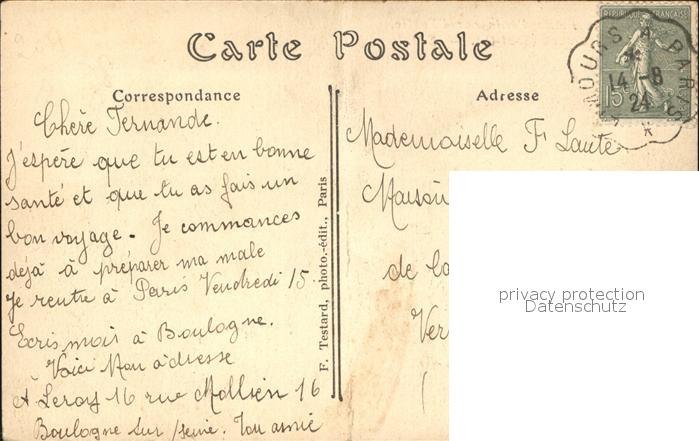 Carte Postale
Correspondance
Adresse
RÉPUBLIQUE FRANÇAISE
15
A PARIS
14-8
24
Chère Fernande.
J'espère que tu est en bonne
santé et que tu as fais un
bon voyage. Je commances
déjà à préparer ma male
Je rentre à Paris Vendredi 15
Ecris moi à Boulogne.
Voici Mon adresse
A Leroy 16 rue Mollien 16
Boulogne sur Seine. Ton amie
F. Testard, photo.-édit., Paris
Mademoiselle F Laute
Maison
de
Ver
privacy protection
Datenschutz